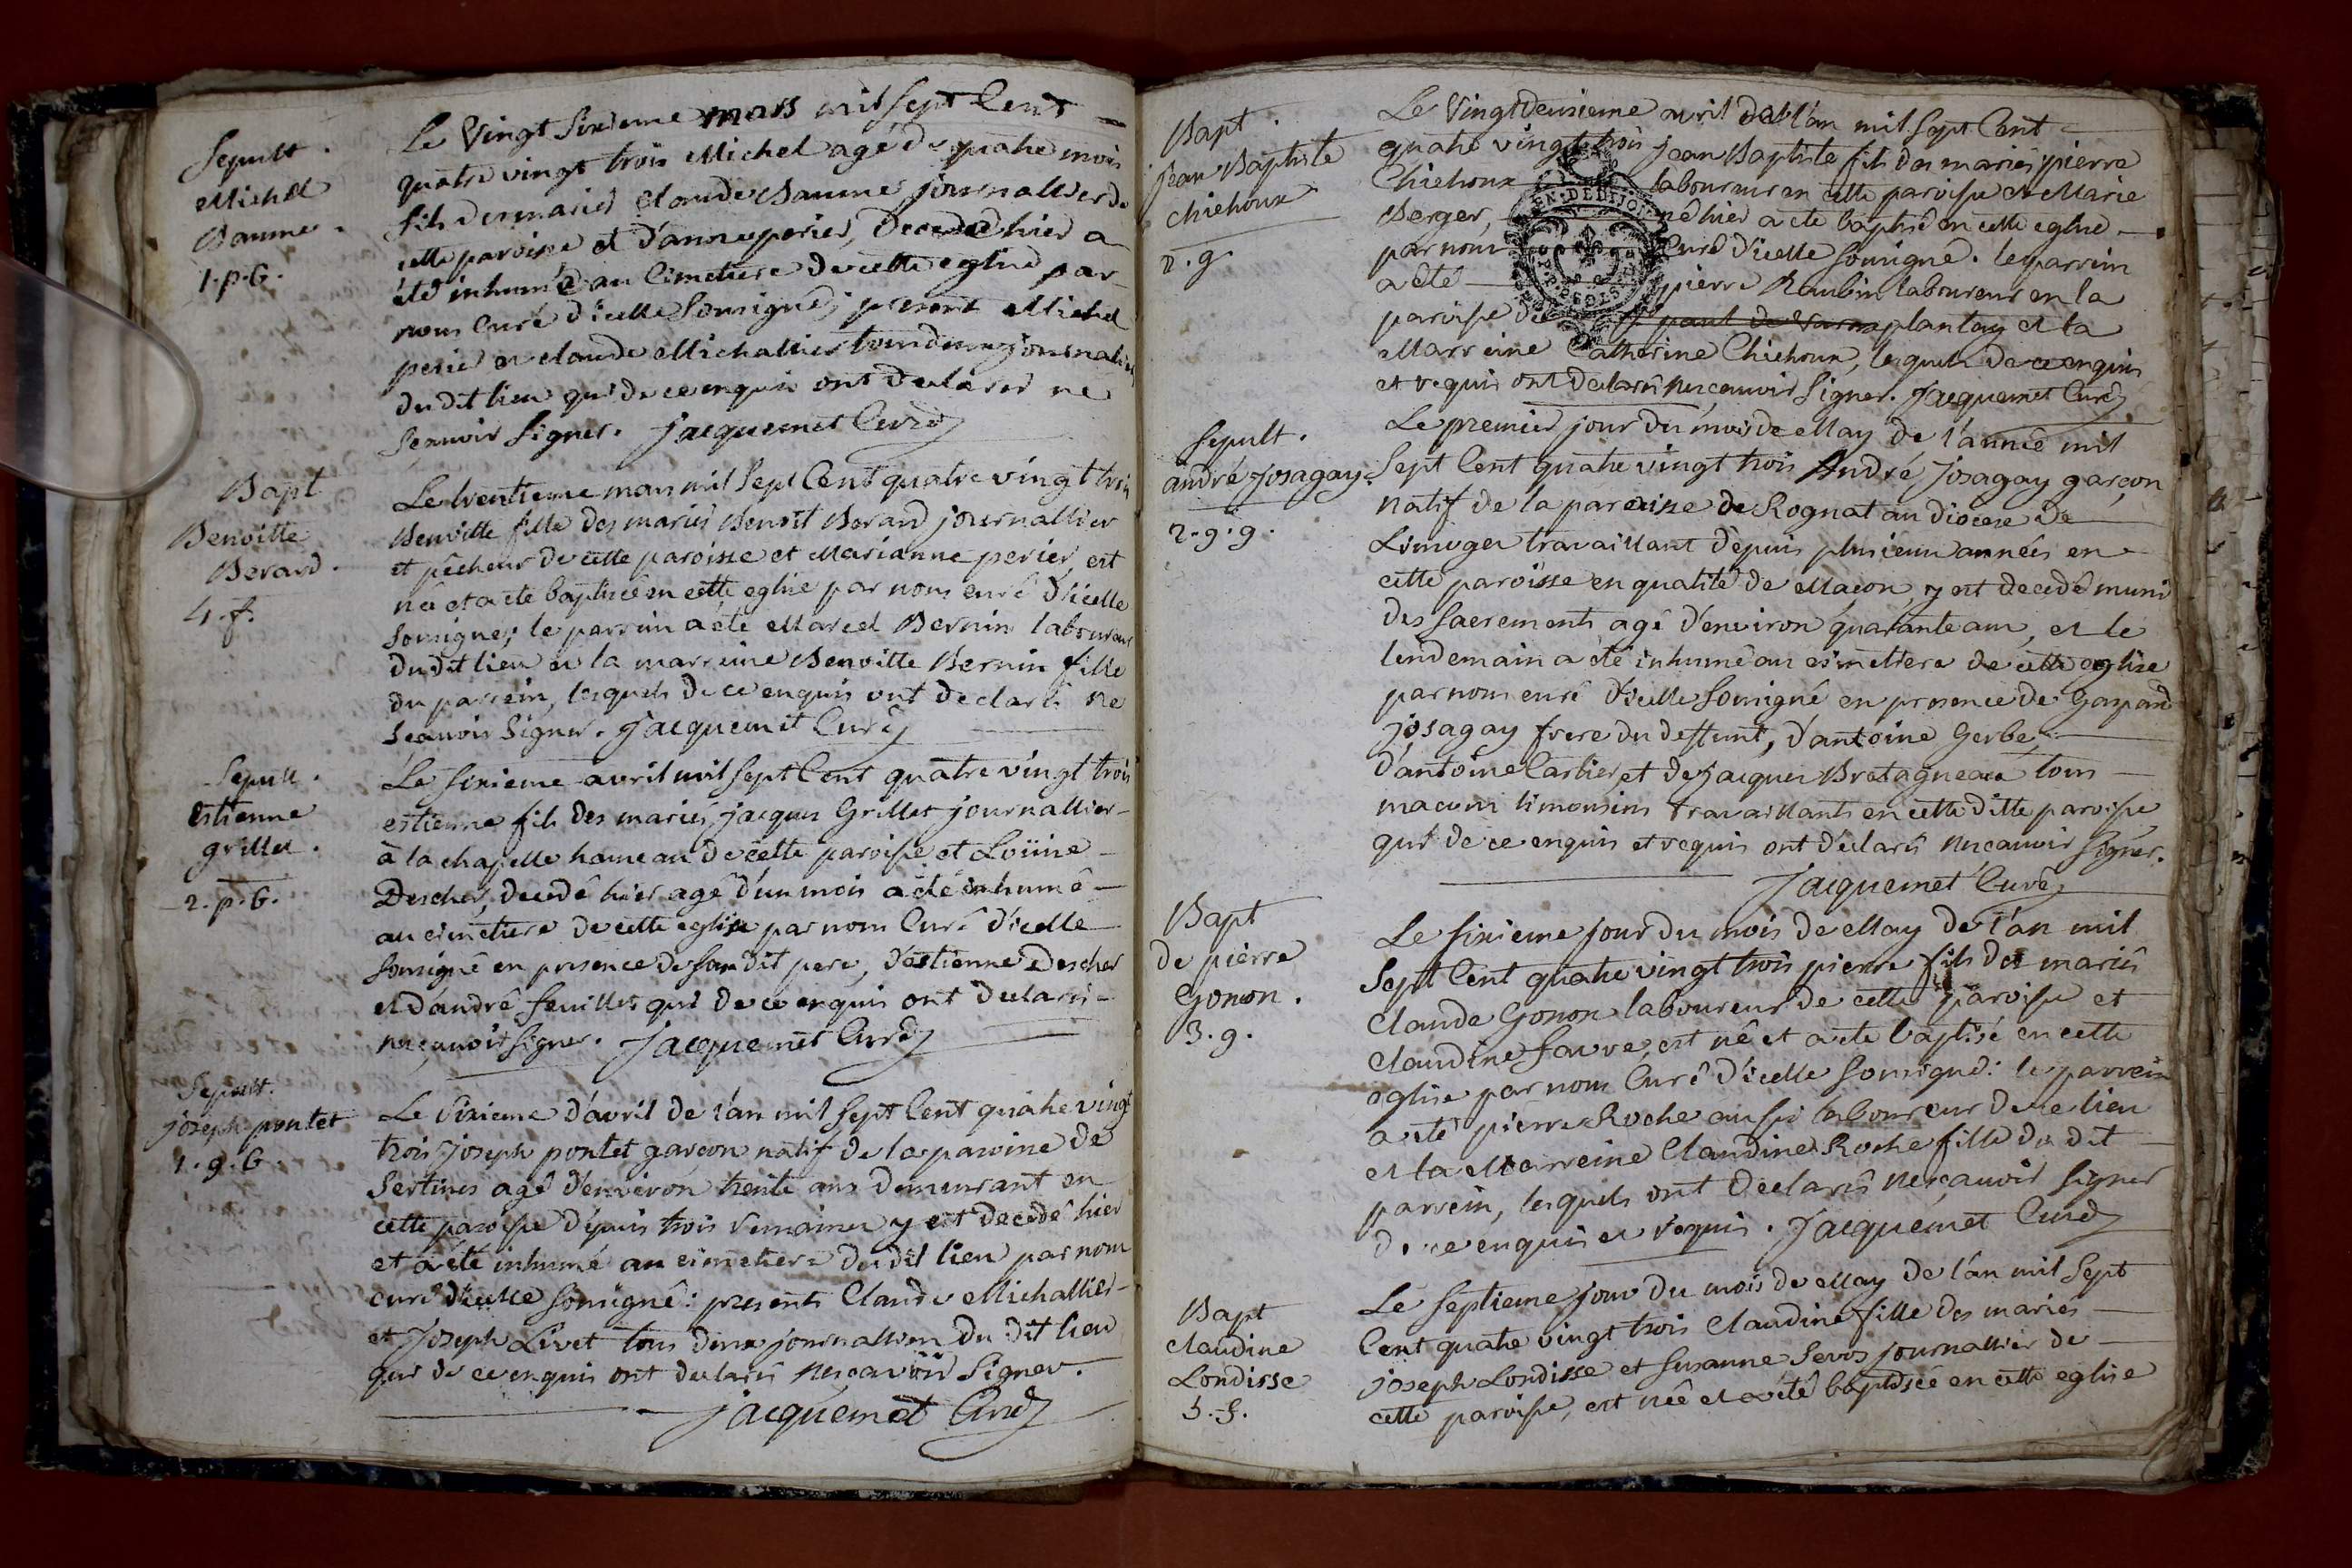 Sepult.
Michel
Baume.
1.p.G.
Le vingt sixieme mars mil sept Cent
quatre vingt trois Michel agé de quatre mois
fils des mariés claude Baume journallier de
cette paroisse et d'anne perier, decedé hier a
été inhumé au Cimetiere de cette eglise par
nous Curé d'icelle Soussigné, present Michel
perier et claude Michallier tous deux journaliers
du dit lieu qui de ce enquis ont declarer ne
Scauoir Signer. Jacquemet Curé
Bapt
Benoitte
Berard.
4.f.
Le trentieme mars mil Sept Cent quatre vingt trois
Benoitte fille des mariés Benoit Berard journallier
et pêcheur de cette paroisse et Marianne perier, est
née et a été baptisée en cette eglise par nous curé d'icelle
Soussigné; le parrein a été Marcel Bernin laboureur
du dit lieu et la marreine Benoitte Bernin fille
du parrein, lesquels de ce enquis ont declaré ne
Scauoir Signer. Jacquemet Curé
Sepult.
estienne
grillet.
2.p.G.
Le Sixieme avril mil Sept Cent quatre vingt trois
estienne fils des mariés jacques Grillet journallier
à la chapelle hameau de cette paroisse et Loüise
Descher, decedé hier agé d'un mois a été inhumé
au cimetiere de cette eglise par nous Curé d'icelle
Soussigné en presence de Son dit pere, d'estienne Descher
et d'andré feuillet qui de ce enquis ont declaré
ne scauoir Signer. Jacquemet Curé
Sepult.
joseph pontet
1.g.G.
Le Sixieme d'avril de l'an mil Sept Cent quatre vingt
trois joseph pontet garçon natif de la paroisse de
Sertines agé d'environ trente ans demeurant en
cette paroisse depuis trois Semaines y est decedé hier
et a été inhumé au cimetiere du dit lieu par nous
curé d'icelle Soussigné: presents Claude Michallier
et Joseph Livet tous deux journalliers du dit lieu
qui de ce enquis ont declaré ne sçavoir Signer.
Jacquemet Curé
Bapt.
jean Baptiste
chichoux
2.g.
Le Vingt deuxieme avril de l'an mil Sept Cent
quatre vingt trois jean Baptiste fils des mariés pierre
Chichoux laboureur en cette paroisse et Marie
Berger, né hier a été baptisé en cette eglise
par nous Curé d'icelle Soussigné. le parrein
a été pierre Raubin laboureur en la
paroisse de plantay et la
Marreine Catherine Chichoux, lesquels de ce enquis
et requis ont declaré ne scauoir Signer. Jacquemet Curé
GEN. DE DIJON
Sepult.
andré Josagay
2.g.g.
Le premier jour du mois de May de l'année mil
Sept Cent quatre vingt trois André Josagay garçon
natif de la paroisse de Rognat au diocese de
Limoges travaillant depuis plusieurs années en
cette paroisse en qualité de Maçon, y est decedé muni
des Sacrements agé d'environ quarante ans, et le
lendemain a été inhumé au cimetiere de cette eglise
par nous curé d'icelle Soussigné en presence de Gaspard
josagay frere du deffunt, d'antoine Gerbe,
d'antoine Carlier et de jacques Bretagneau tous
macons limousins travaillants en cette ditte paroisse
qui de ce enquis et requis ont declaré ne scauoir Signer.
Jacquemet Curé
Bapt
de pierre
Gonon.
3.g.
Le Sixieme jour du mois de May de l'an mil
Sept Cent quatre vingt trois pierre fils des mariés
Claude Gonon laboureur de cette paroisse et
Claudine favre, est né et a été baptisé en cette
eglise par nous Curé d'icelle Soussigné: le parrein
a été pierre Roche aussi laboureur de ce lieu
et la Marreine Claudine Roche fille du dit
parrein, lesquels ont declaré ne sçauoir Signer
de ce enquis et requis. Jacquemet Curé
Bapt
claudine
Londisse
5.f.
Le Septieme jour du mois de May de l'an mil Sept
Cent quatre vingt trois Claudine fille des mariés
joseph Londisse et Susanne Sevos journallier de
cette paroisse, est née et a été baptisée en cette eglise